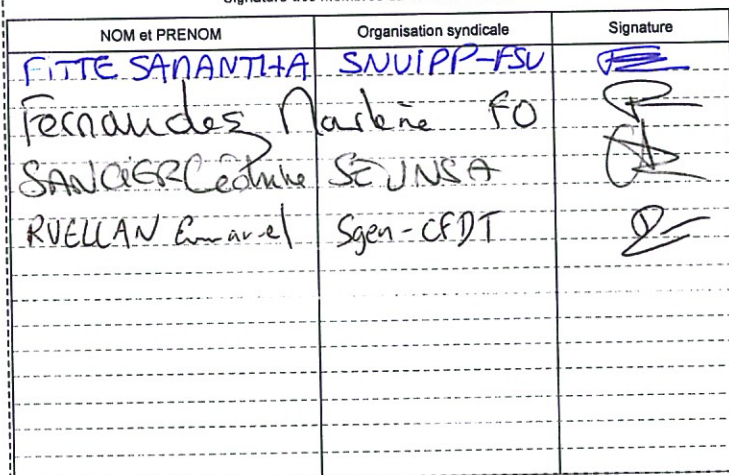 Signature des membres
NOM et PRENOM Organisation syndicale Signature
FITTE SAMANTHA SNUIPP-FSU
Fernandes Marlène FO
SANCIER Cédrine SE UNSA
RUELLAN Emmanuel Sgen-CFDT